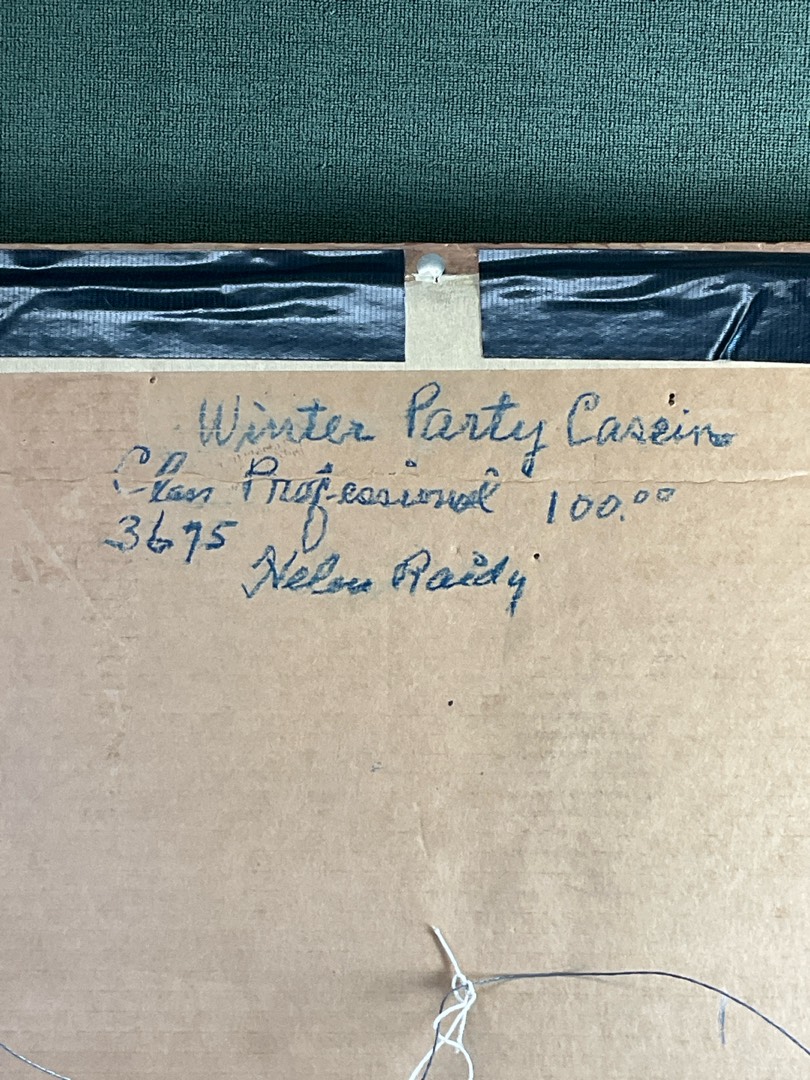 Winter Party Casein
Class Professional 100.00
3675
Helen Raidy